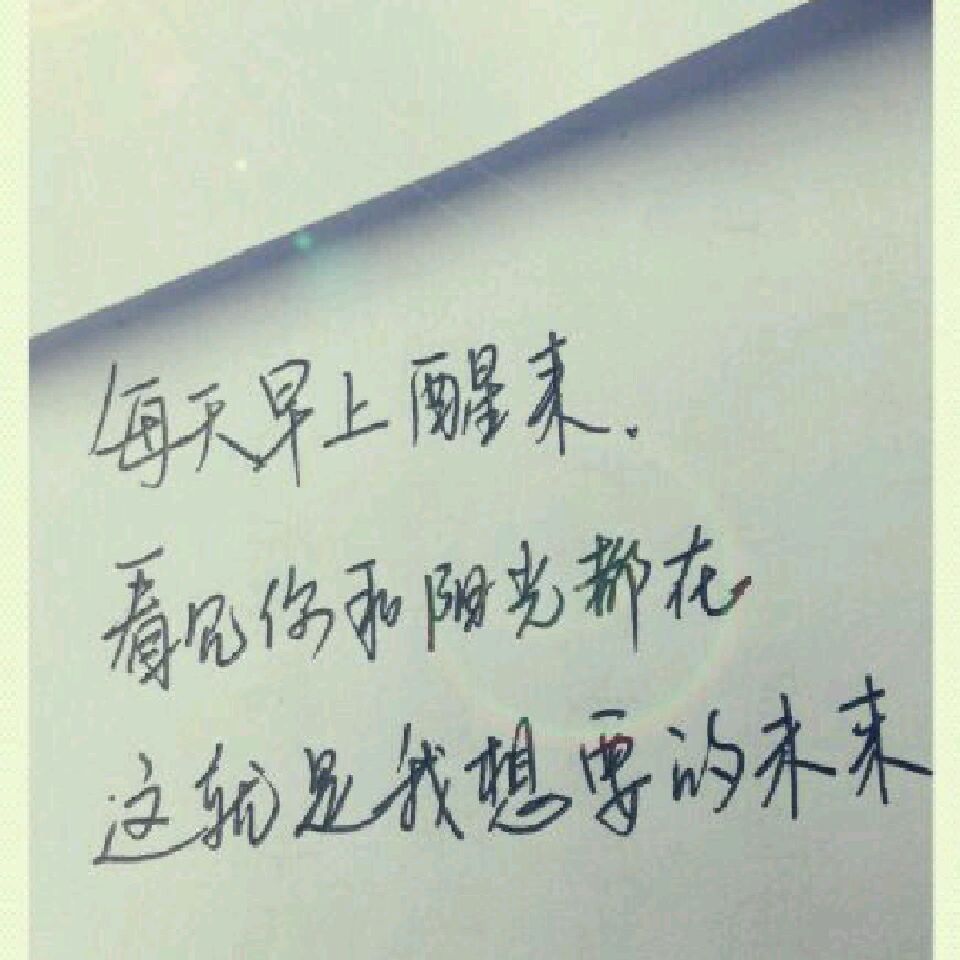 每天早上醒来.
看见你和阳光都在
这就是我想要的未来